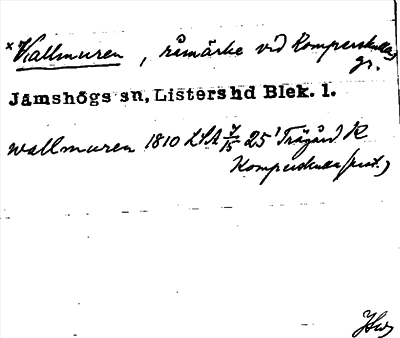 ˣVallmuren, råmärke vid Komperskulla
gr.
Jämshögs sn, Listers hd Blek. l.
wallmuren 1810 LSA 7/15 25¹ Trägård R
Komperskulla (prot.)